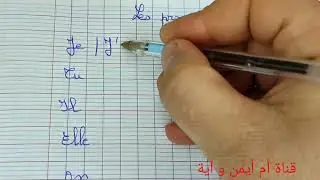 Les pro
Je | J'
Tu
Il
Elle
On
قناة أم أيمن و أية